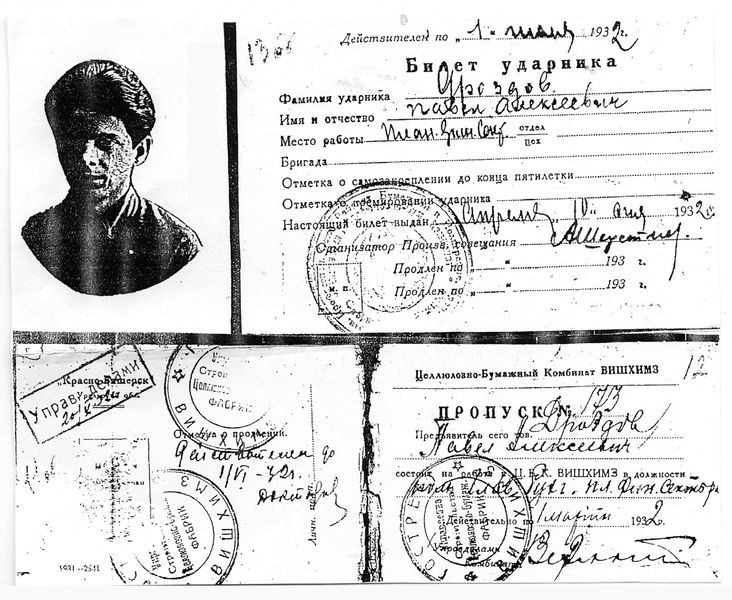 Действителен по „1" июня 1932 г.
Билет ударника
Фамилия ударника Дроздов
Имя и отчество Павел Алексеевич
Место работы План. Фин. Сект. отдел цех
Бригада
Отметка о самозакреплении до конца пятилетки
Отметка о премировании ударника
Настоящий билет выдан Апреля „10" дня 1932 г.
Организатор Произв. совещания
Продлен по „ " 193 г.
Продлен по „ " 193 г.
м. п.
„Красно-Вишерск
Управделами
ФАБРИК
Отметка о продлении.
Действителен до
1/VI-32г.
Личн. подп.
ВИШХИМЗ
ФАБРИК
1931
Целлюлозно-Бумажный Комбинат ВИШХИМЗ
12
ПРОПУСК № 173
Предъявитель сего тов. Дроздов
Павел Алексеевич
состоит на работе в Ц. Б. К. ВИШХИМЗ в должности
Пл. Фин. Сектора
Действительно по 1 марта 1932 г.
Управделами
Комбината